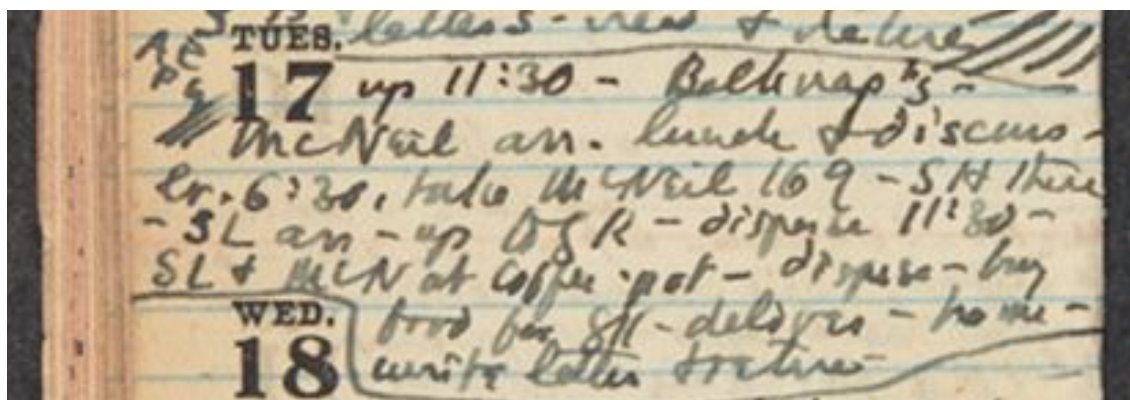 letters - read & retire
TUES.
17 up 11:30 - Belknap's -
McNeil arr. lunch & discuss -
lv. 6:30, take McNeil 169 - SH there
- SL arr - up DGR - disperse 11:30 -
SL & McN at coffee pot - disperse - buy
food for SH - deliver - home -
WED.
18 write letter & retire